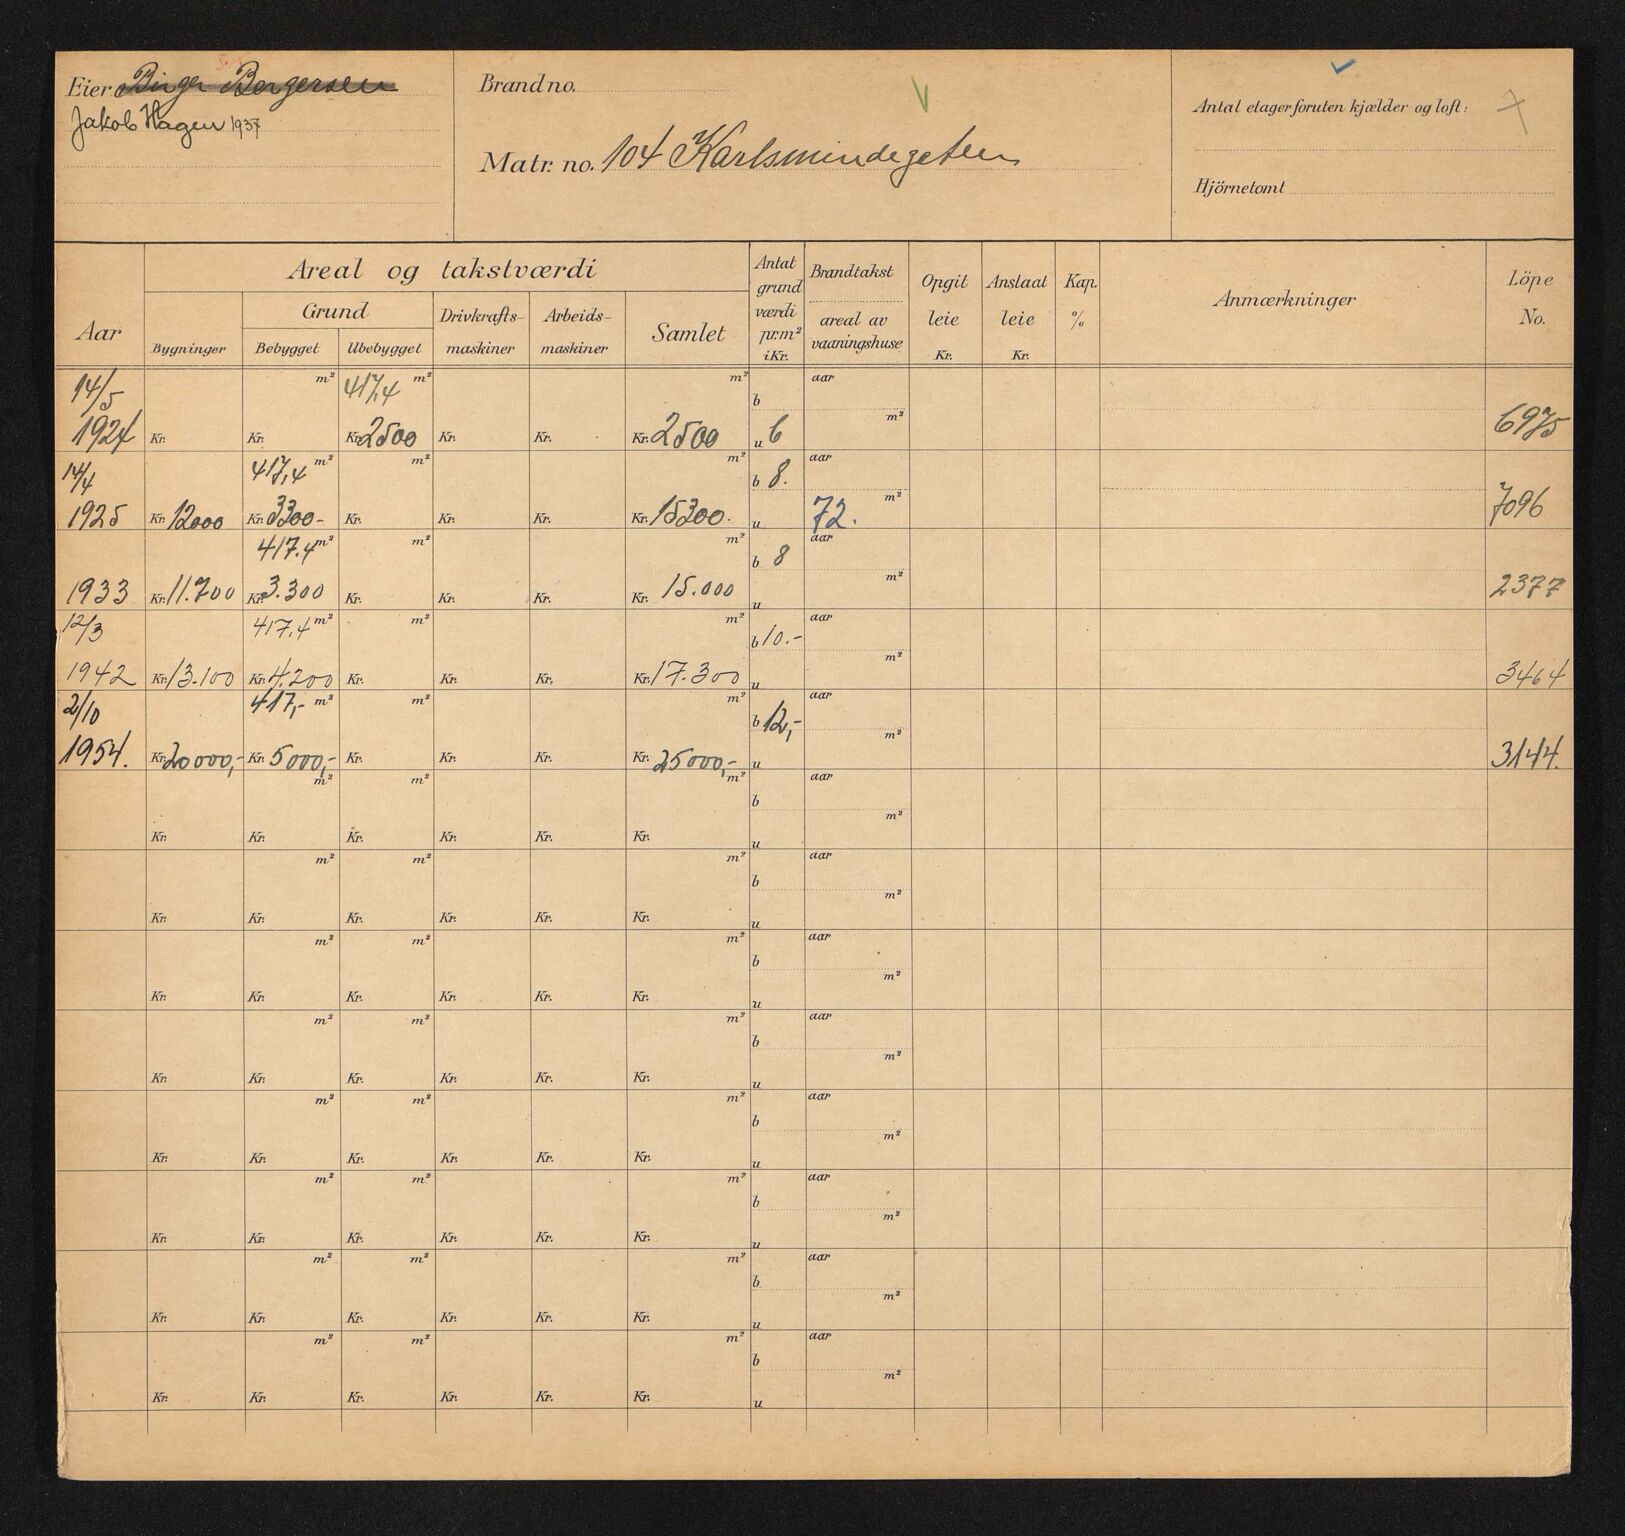 Eier Birger Bergersen
Jakob Hagen 1937
Brandno.
Matr. no. 104 Karlsmindegaten
Antal etager foruten kjælder og loft:
Hjörnetomt
Aar
Areal og takstværdi
Bygninger
Grund
Bebygget
Ubebygget
Drivkrafts-
maskiner
Arbeids-
maskiner
Samlet
Antat
grund
værdi
pr.m²
i Kr.
Brandtakst
areal av
vaaningshuse
Opgit
leie
Kr.
Anslaat
leie
Kr.
Kap.
%
Anmærkninger
Löpe
No.
14/5 m² 417,4 m² m² b aar
1924 Kr. Kr. Kr. 2500 Kr. Kr. Kr. 2500 u 6 m² 6975
14/4 417,4 m² m² m² b 8. aar
1925 Kr. 12000 Kr. 3300- Kr. Kr. Kr. Kr. 15300. u 72. m² 7096
417.4 m² m² m² b 8 aar
1933 Kr. 11.700 Kr. 3.300 Kr. Kr. Kr. Kr. 15.000 u m² 2377
12/3 417,4 m² m² m² b 10.- aar
1942 Kr. 13.100 Kr. 4.200 Kr. Kr. Kr. Kr. 17.300 u m² 3464
2/10 417,- m² m² m² b 12,- aar
1954. Kr. 20000,- Kr. 5000,- Kr. Kr. Kr. Kr. 25000,- u m² 3144.
m² m² m² b aar
Kr. Kr. Kr. Kr. Kr. Kr. u m²
m² m² m² b aar
Kr. Kr. Kr. Kr. Kr. Kr. u m²
m² m² m² b aar
Kr. Kr. Kr. Kr. Kr. Kr. u m²
m² m² m² b aar
Kr. Kr. Kr. Kr. Kr. Kr. u m²
m² m² m² b aar
Kr. Kr. Kr. Kr. Kr. Kr. u m²
m² m² m² b aar
Kr. Kr. Kr. Kr. Kr. Kr. u m²
m² m² m² b aar
Kr. Kr. Kr. Kr. Kr. Kr. u m²
m² m² m² b aar
Kr. Kr. Kr. Kr. Kr. Kr. u m²